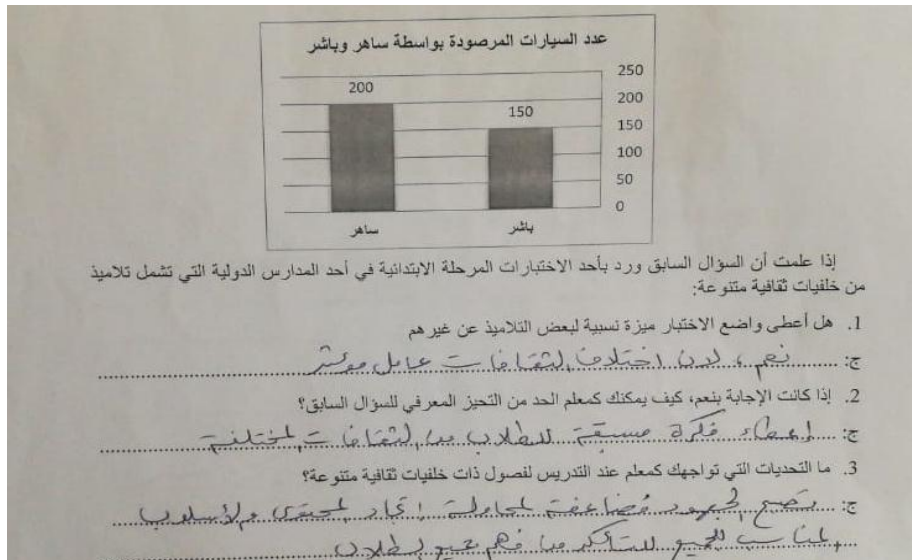 عدد السيارات المرصودة بواسطة ساهر وباشر
250
200
200
150
150
100
50
0
باشر
ساهر
إذا علمت أن السؤال السابق ورد بأحد الاختبارات المرحلة الابتدائية في أحد المدارس الدولية التي تشمل تلاميذ
من خلفيات ثقافية متنوعة:
1. هل أعطى واضع الاختبار ميزة نسبية لبعض التلاميذ عن غيرهم
ج: نعم، لأن اختلاف الثقافات عامل مؤثر
2. إذا كانت الإجابة بنعم، كيف يمكنك كمعلم الحد من التحيز المعرفي للسؤال السابق؟
ج: إعطاء فكرة مسبقة للطلاب من الثقافات المختلفة
3. ما التحديات التي تواجهك كمعلم عند التدريس لفصول ذات خلفيات ثقافية متنوعة؟
ج: تصبح الجهود مُضاعفة لمحاولة إيجاد المحتوى والأسلوب
المناسب للجميع للتأكد من فهم جميع الطلاب